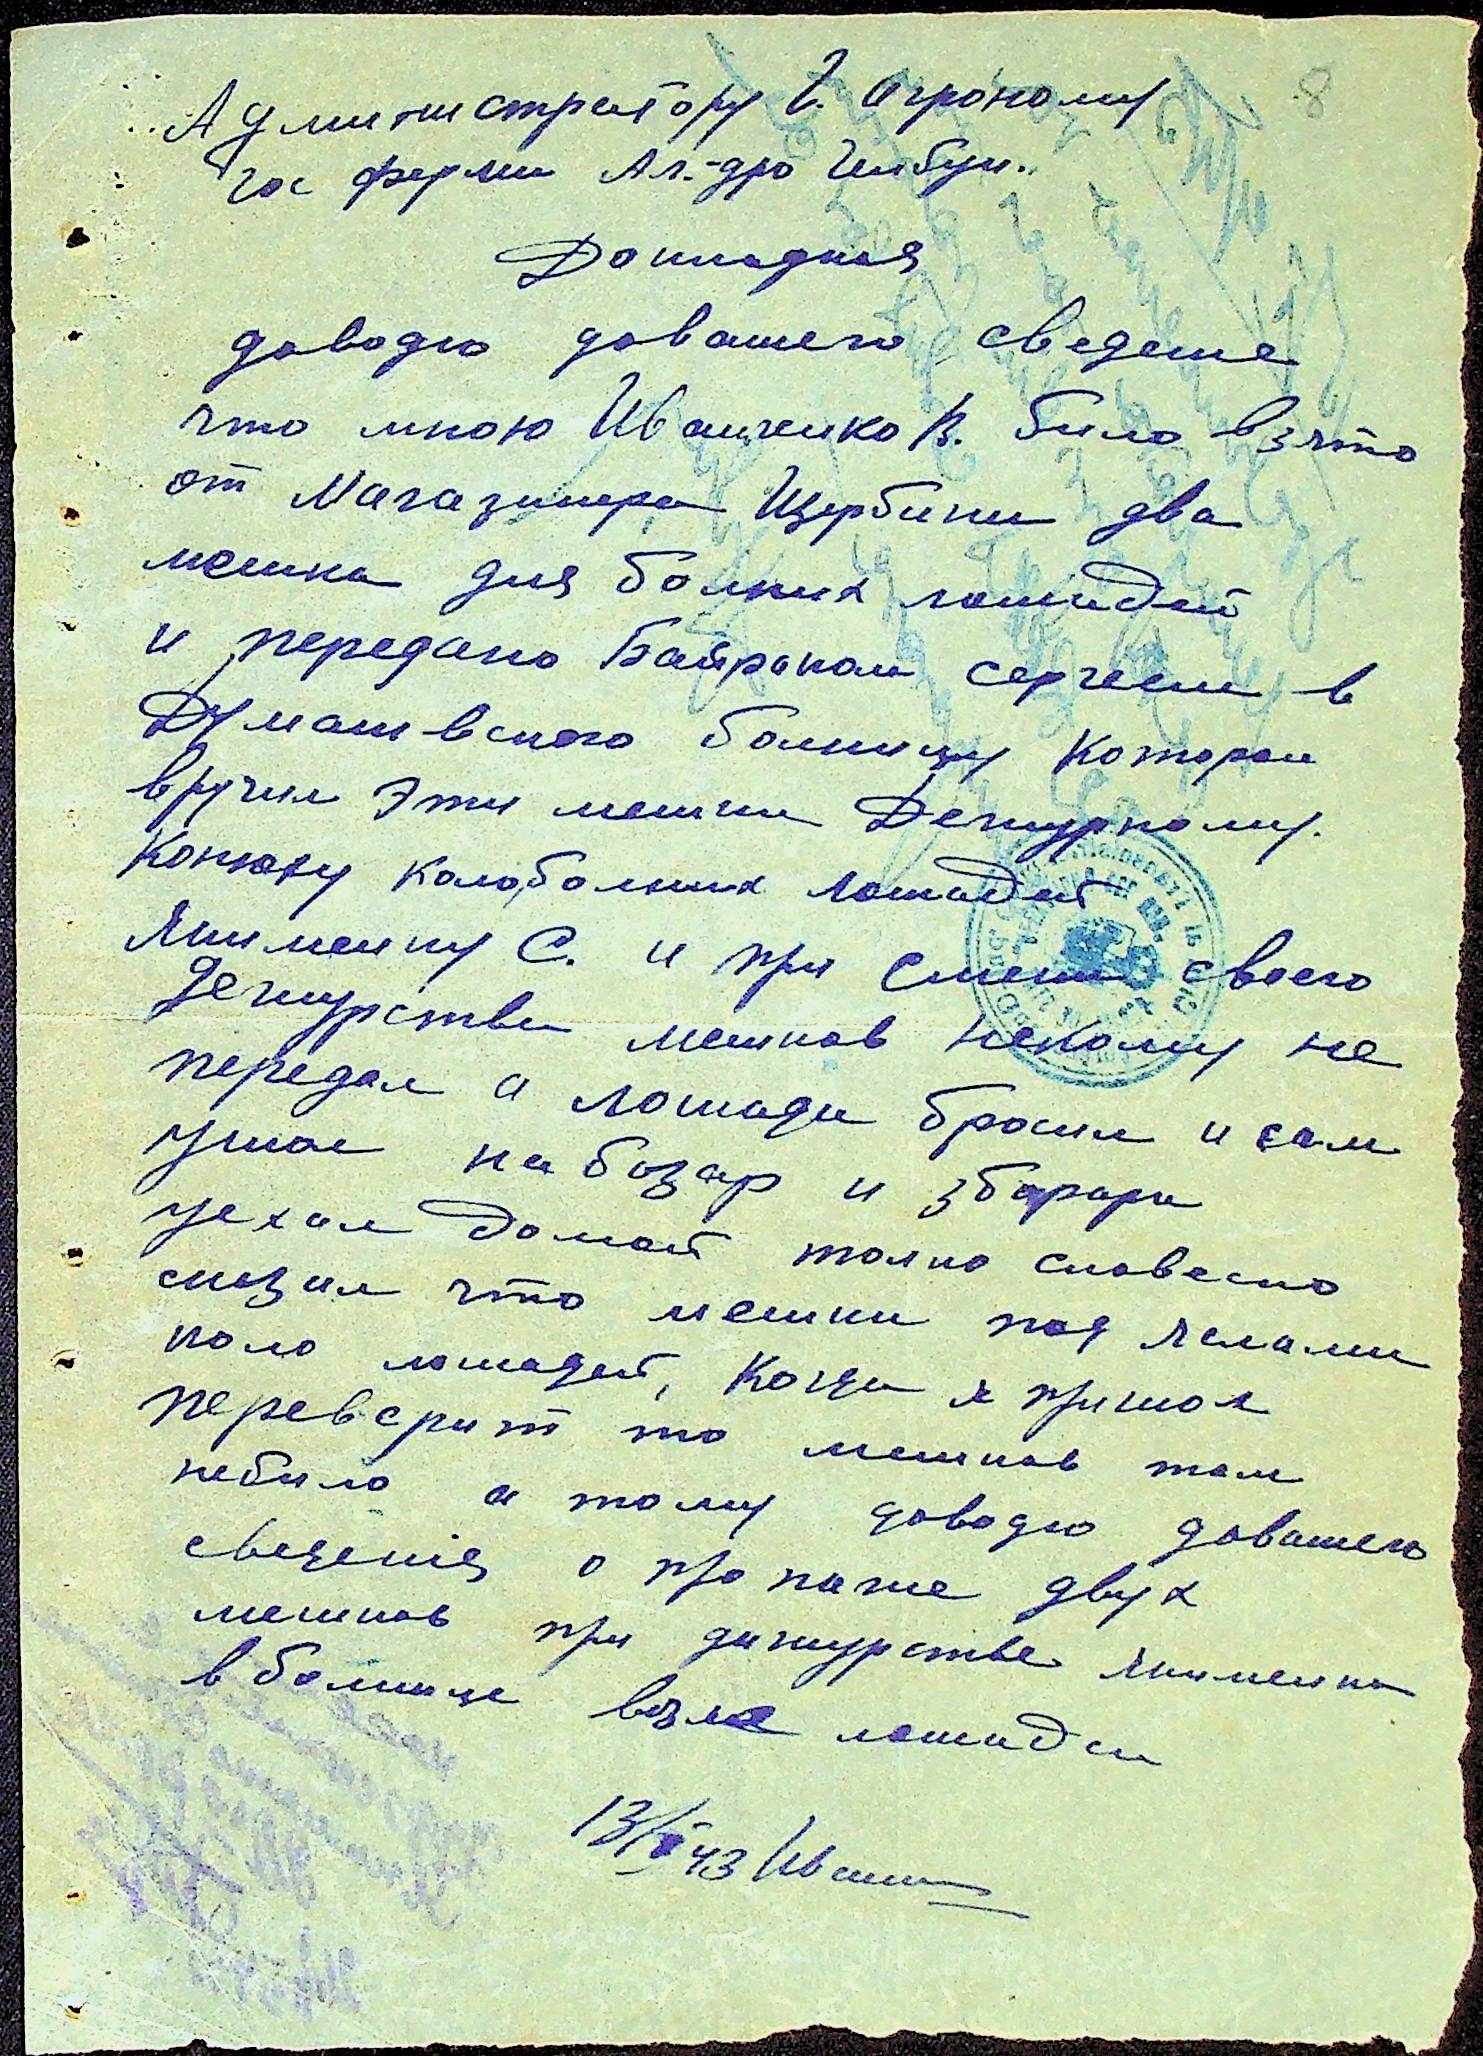 8
Администратору Г. Агроному
гос ферми Ал.-дро Гилбун..
Докладная
доводю довашего сведение
что мною Иванченко В. било взято
от Магазинера Щербини два
мешка для болних лошадей
и передано Байраком сергеем в
Думашевского болницу которой
вручил эти мешки Дежурному.
Конюху коло болних лошадей
Якименку С. и при смене своего
дежурстви мешков некому не
передал а лошади бросил и сам
ушол на бозар и збазара
уехал домой толко словесно
сказал что мешки под яслами
коло лошадей, Когда я пришол
переверит то мешков там
небило а тому доводю довашего
сведенія о пропаже двух
мешков при дижурстве Якименка
в болнице возле лошадеи
13/ 43 Иванч